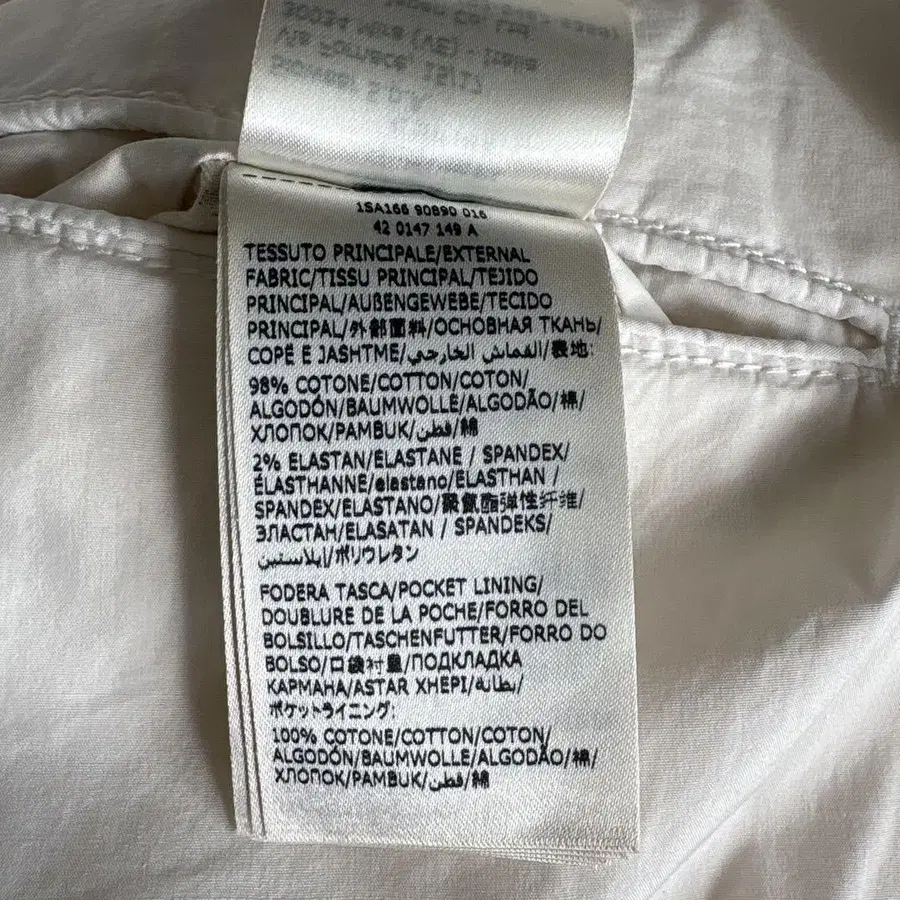 1SA166 90890 016
42 0147 149 A
TESSUTO PRINCIPALE/EXTERNAL
FABRIC/TISSU PRINCIPAL/TEJIDO
PRINCIPAL/AUßENGEWEBE/TECIDO
PRINCIPAL/外部面料/ОСНОВНАЯ ТКАНЬ/
COPË E JASHTME/القماش الخارجي/表地:
98% COTONE/COTTON/COTON/
ALGODÓN/BAUMWOLLE/ALGODÃO/棉/
ХЛОПОК/PAMBUK/قطن/綿
2% ELASTAN/ELASTANE / SPANDEX/
ÉLASTHANNE/elastano/ELASTHAN /
SPANDEX/ELASTANO/聚氨酯弹性纤维/
ЭЛАСТАН/ELASATAN / SPANDEKS/
إيلاستين/ポリウレタン
FODERA TASCA/POCKET LINING/
DOUBLURE DE LA POCHE/FORRO DEL
BOLSILLO/TASCHENFUTTER/FORRO DO
BOLSO/口袋衬量/ПОДКЛАДКА
КАРМАНА/ASTAR XHEPI/بطانة/
ポケットライニング:
100% COTONE/COTTON/COTON/
ALGODÓN/BAUMWOLLE/ALGODÃO/棉/
ХЛОПОК/PAMBUK/قطن/綿